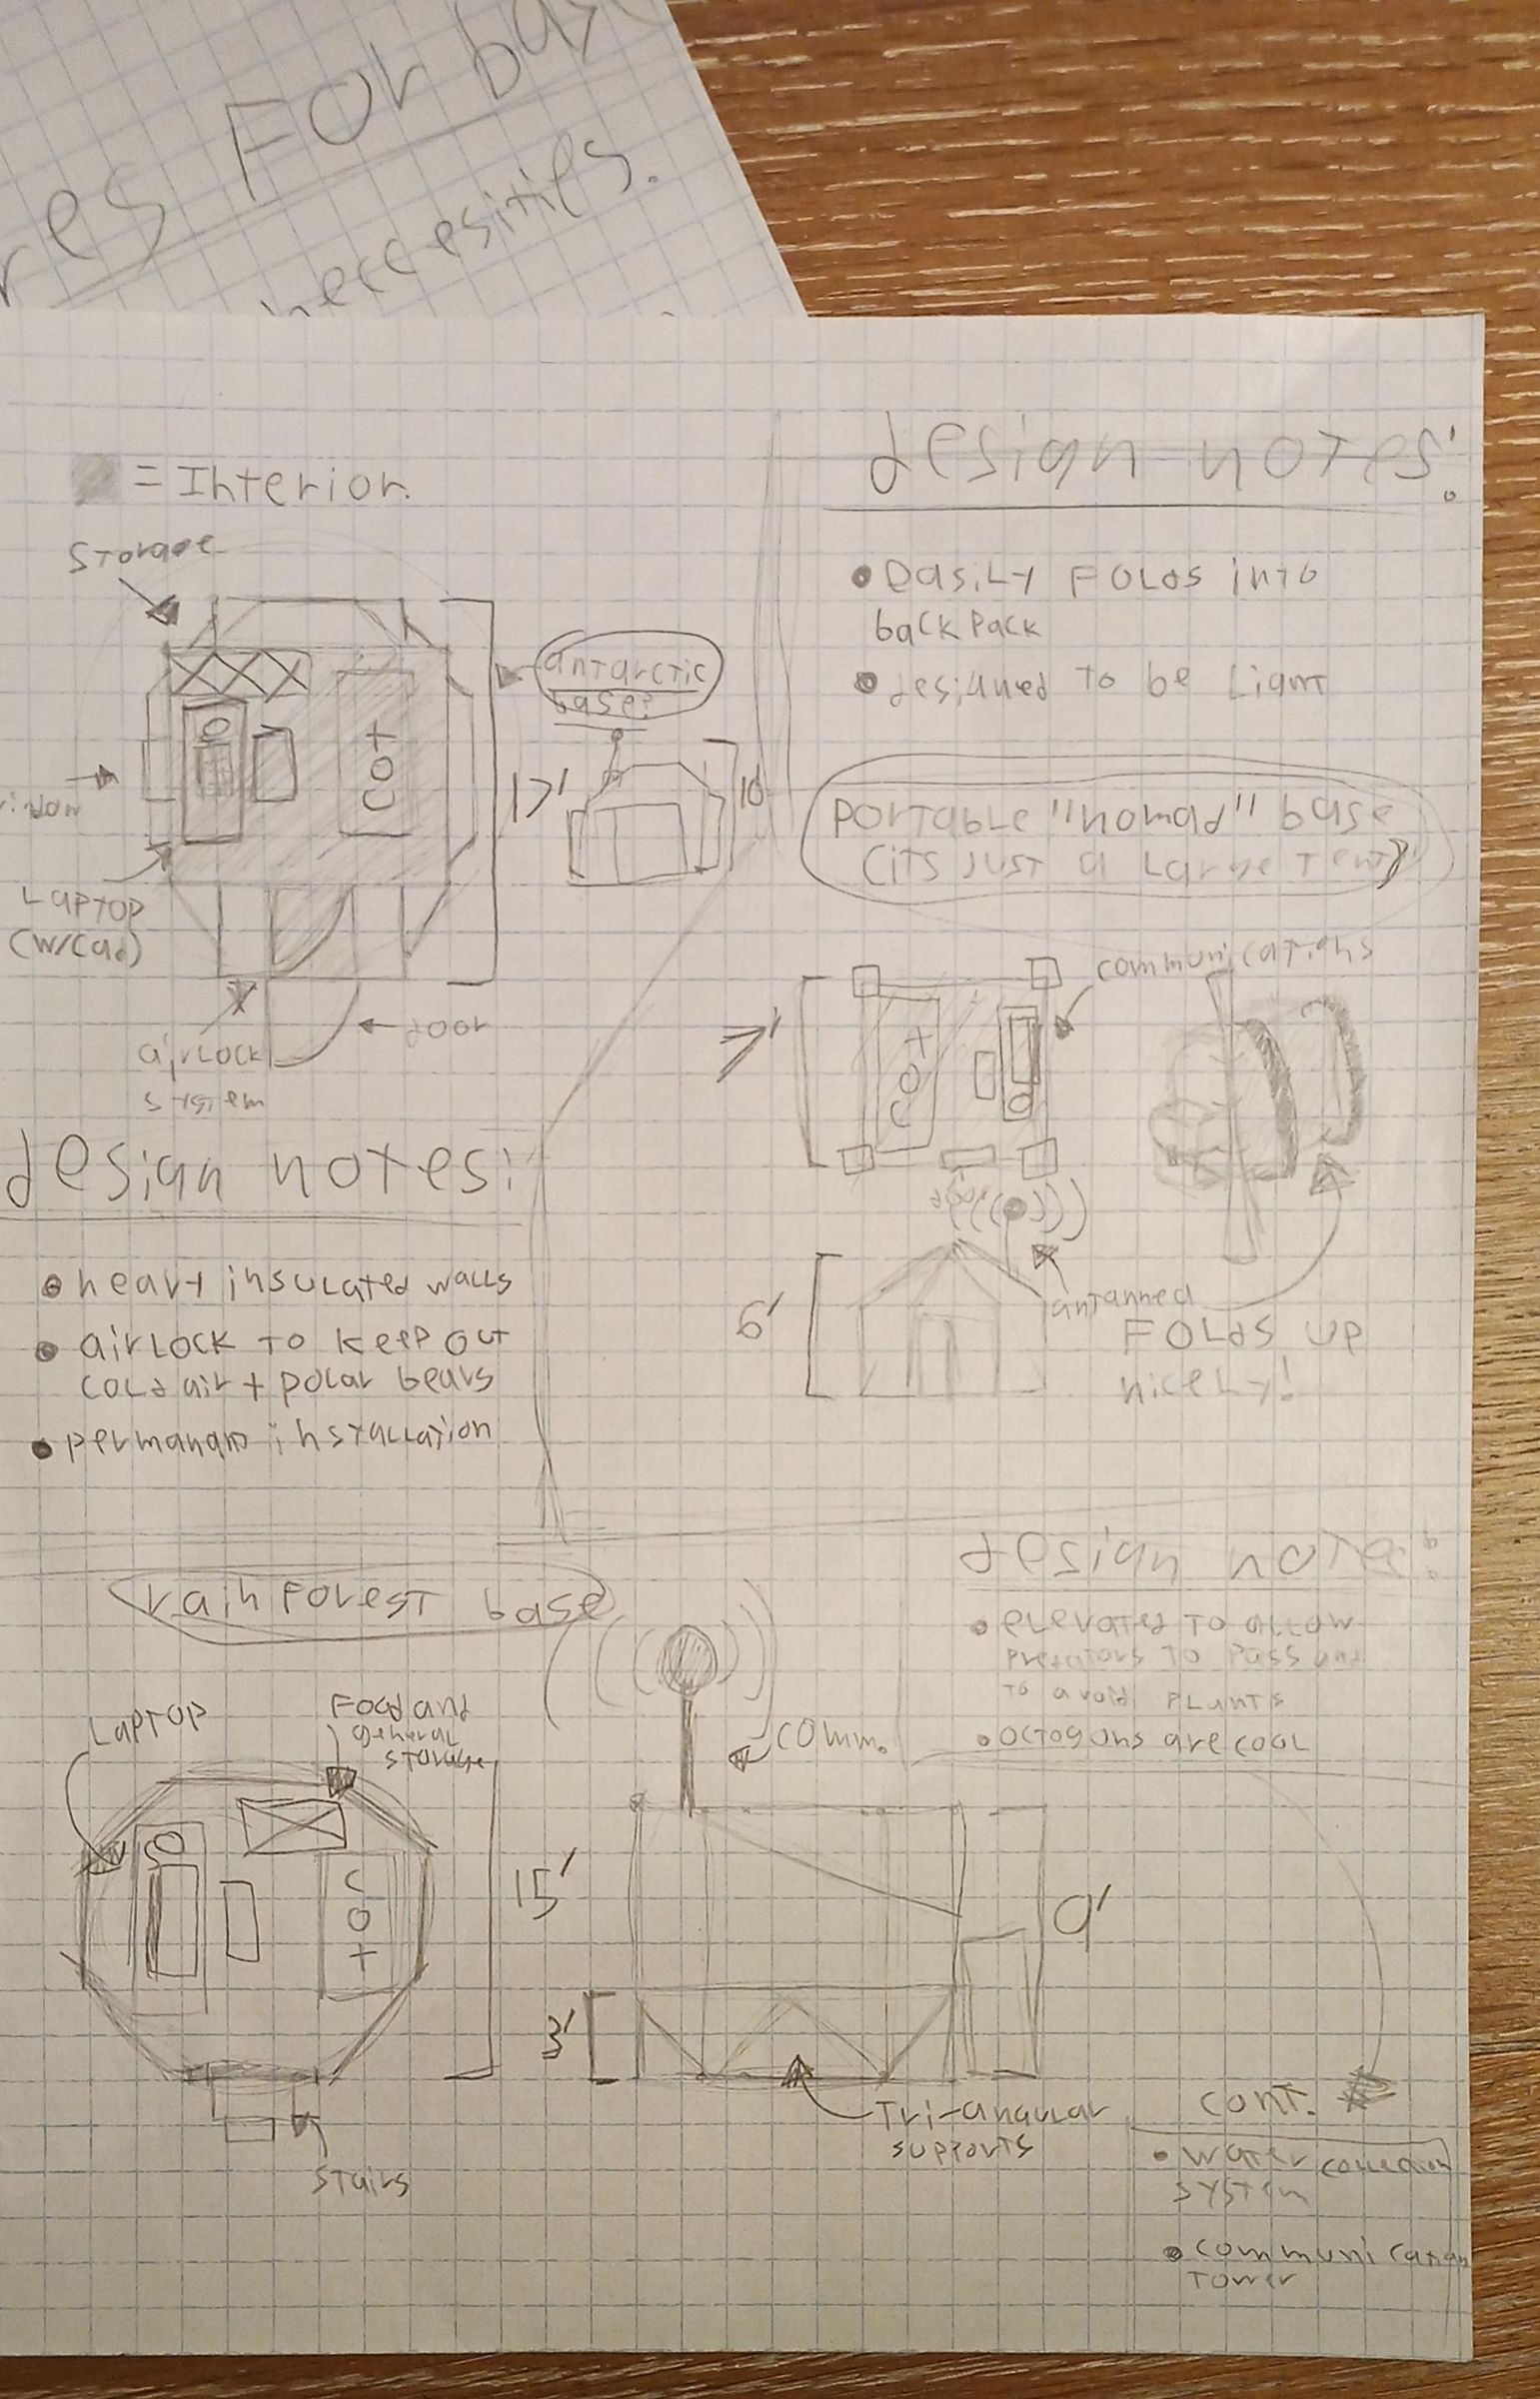 res For bas
neccesities.
= Interior.
Storage
antarctic
base:
17'
10'
cot
Laptop
(w/cad)
door
airlock
system
design notes:
• heavy insulated walls
• airlock to keep out
cold air + polar bears
• permanant installation
design notes:
• easily folds into
backpack
• designed to be light
portable "nomad" base
(its just a large tent)
communications
7'
cot
door
6'
Folds up
nicely!
rainforest base
Laptop
Food and
general
storage
cot
15'
stairs
comm.
9'
3'
Tri-angular
supports
design notes:
• elevated to allow
predators to pass and
to avoid plants
• octogons are cool
cont.
• water collection
system
• communication
tower